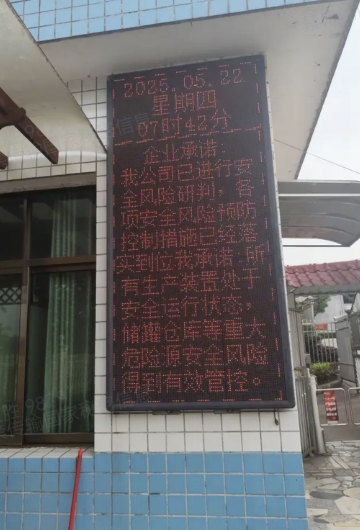 2025.05.22
星期四
07时42分
企业承诺:
我公司已进行安
全风险研判，各
项安全风险预防
控制措施已经落
实到位我承诺:所
有生产装置处于
安全运行状态，
储罐仓库等重大
危险源安全风险
得到有效管控。